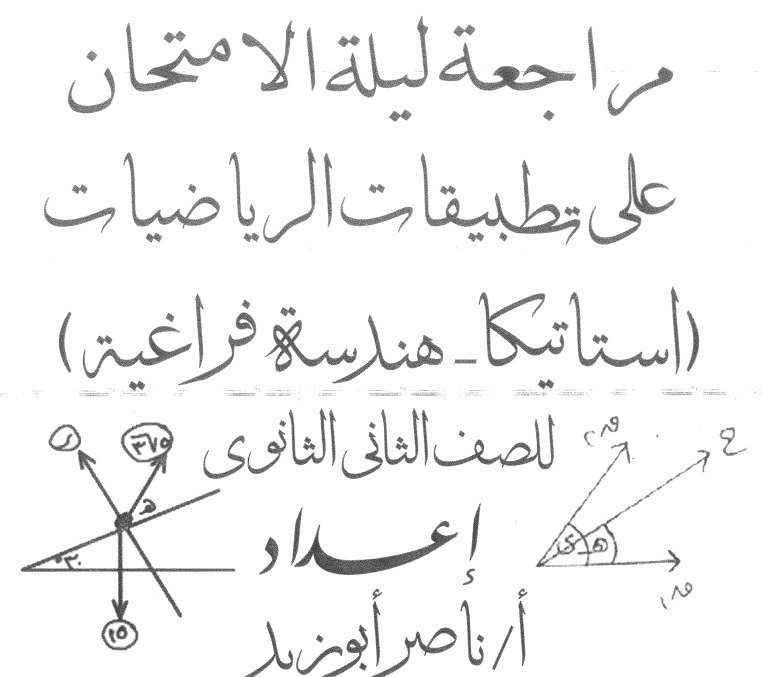 مراجعة ليلة الامتحان
على تطبيقات الرياضيات
(استاتيكا ـ هندسة فراغية)
للصف الثانى الثانوى
إعـــداد
أ/ ناصر أبوزيد
٣٠°
هـ
١٥
ح
ى
هـ